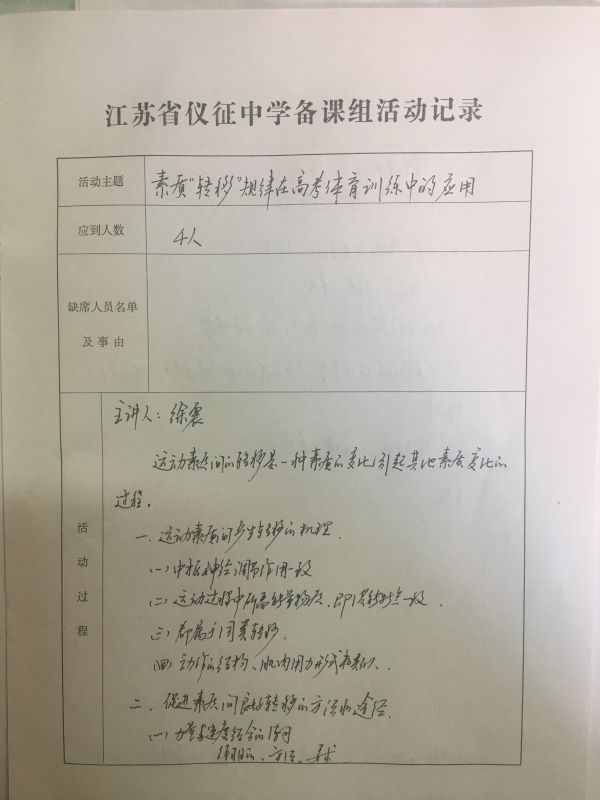 江苏省仪征中学备课组活动记录
活动主题
素质“转移”规律在高考体育训练中的应用
应到人数
4人
缺席人员名单
及事由
活动过程
主讲人：徐震
运动素质间的转移是一种素质的变化引起其他素质变化的
过程。
一、运动素质间产生转移的机理.
(一) 中枢神经调节作用一致
(二) 运动过程中所需能量物质、即供能特点一致.
(三) 都属于同类转移.
(四) 动作的结构、肌肉用力形式相类似.
二、促进素质间良好转移的方法和途径.
(一) 力量与速度结合的
方法、要求